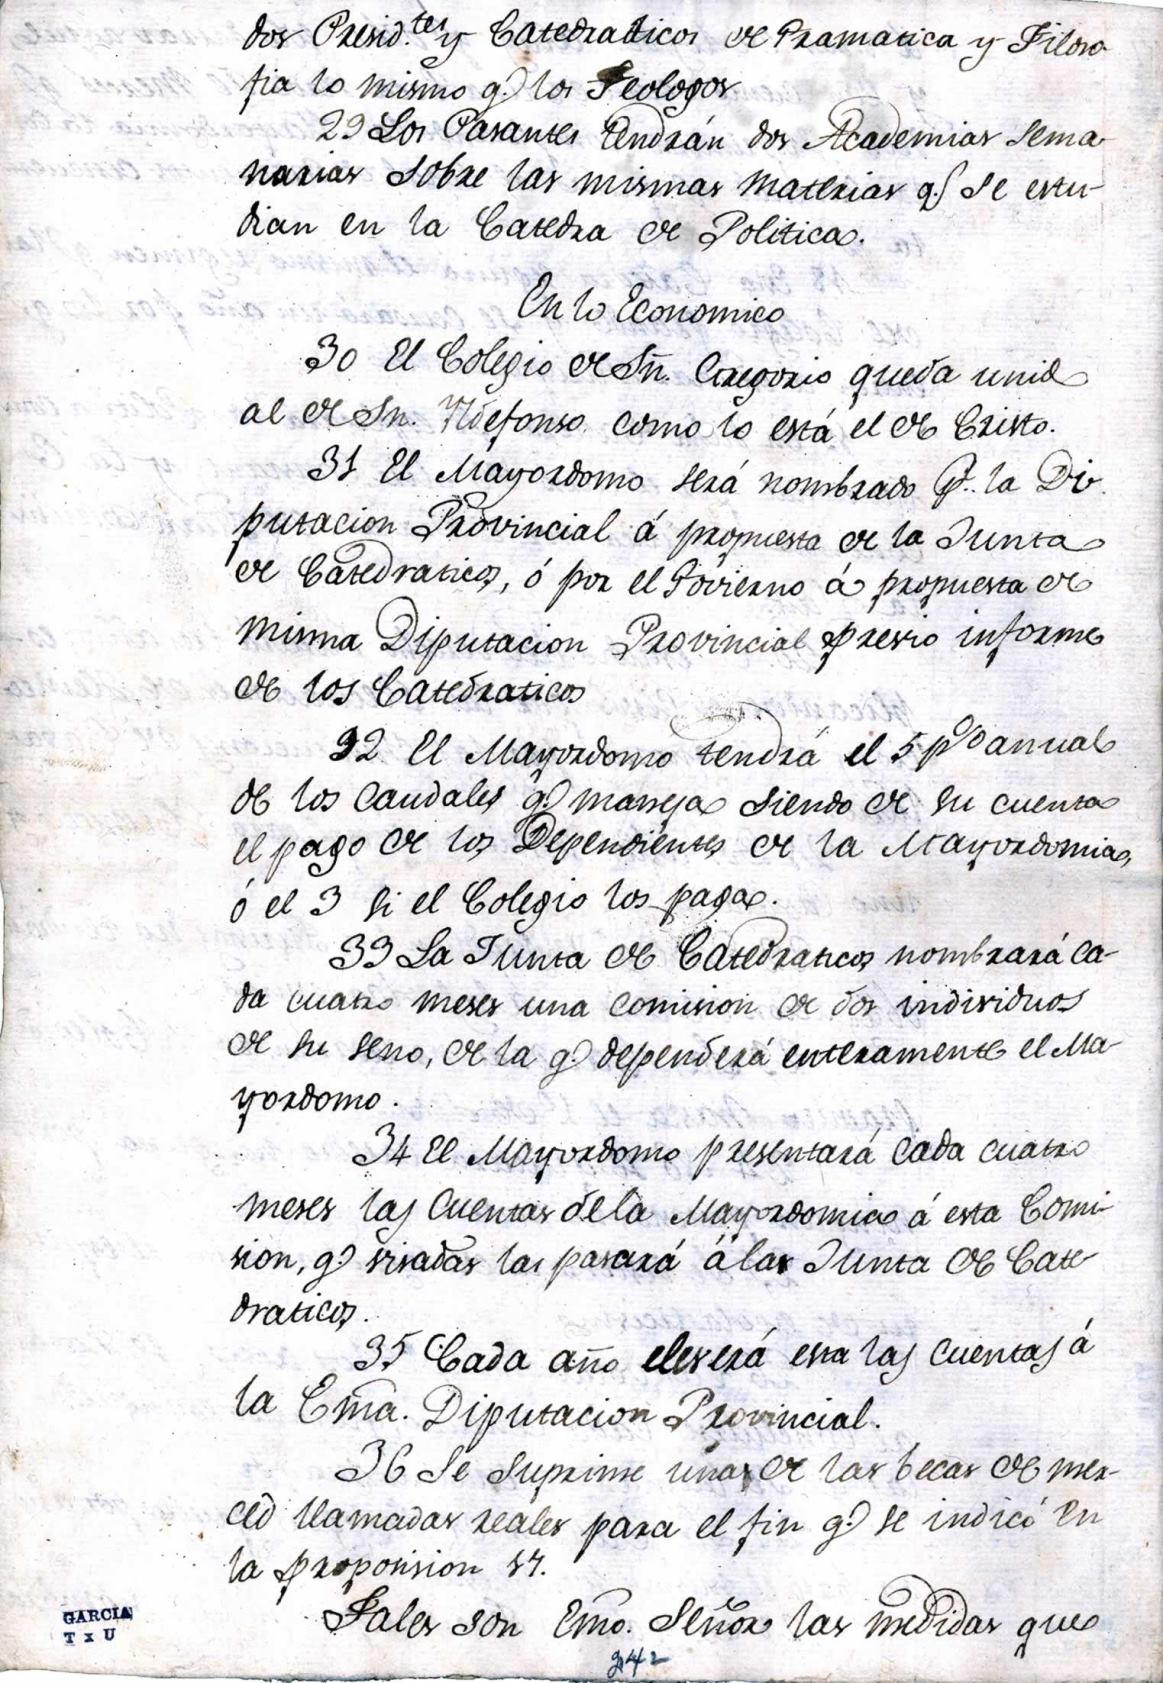 dos Presid.tes y Catedraticos de Gramatica y Filoso-
fia lo mismo q.e los Teologos
29 Los Pasantes tendrán dos Academias sema-
narias sobre las mismas materias q.e se estu-
dian en la Catedra de Politica.
En lo Economico
30 El Colegio de Sñ. Gregorio queda unido
al de Sn. Yldefonso como lo está el de Cristo.
31 El Mayordomo será nombrado p.r la Di-
putacion Provincial á propuesta de la Junta
de Catedraticos, ó por el Govierno á propuesta de
misma Diputacion Provincial previo informe
de los Catedraticos
32 El Mayordomo tendrá el 5 p%o anual
de los caudales q.e maneja siendo de su cuenta
el pago de los Dependientes de la Mayordomia,
ó el 3 si el Colegio los paga.
33 La Junta de Catedraticos nombrará ca-
da cuatro meses una comision de dos individuos
de su seno, de la q.e dependerá enteramente el Ma-
yordomo.
34 El Mayordomo presentará cada cuatro
meses las cuentas de la Mayordomia á esta Comi-
sion, q.e visadas las pasará á las Junta de Cate-
draticos.
35 Cada año eleverá esta las cuentas á
la Ema. Diputacion Provincial.
36 Se suprime unas de las becas de mer-
ced llamadas reales para el fin q.e se indicó en
la proposision 17.
Tales son Emo. Señor las medidas que
GARCIA
T x U
242